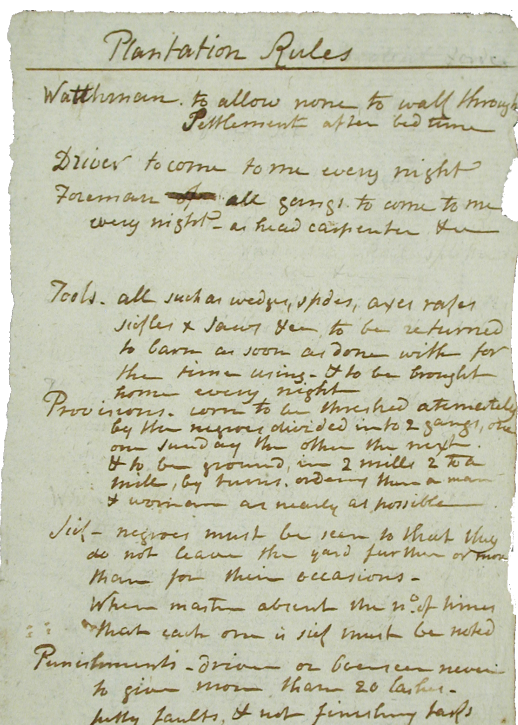 Plantation Rules
Watchman. to allow none to walk through
Settlement after bed time
Driver to come to me every night
Foreman of all gangs. to come to me
every night - as head carpenter &c
Tools - all such as wedges, spdes, axes
sicles & saws &c to be returned
to barn as soon as done with for
the time using - & to be brought
home every night
Provisions - corn to be threshed
by the negroes divided into 2 gangs, one
one sunday the other the next
& to be ground, in 2 mills 2 to a
mill, by turns. ordering them a man
& woman as nearly as possible
Sick - negroes must be seen to that they
do not leave the yard further or more
than for their occasions -
When master absent the no. of times
that each one is sick must be noted
Punishments - driver or overseer never
to give more than 20 lashes -
petty faults, & not finishing tasks